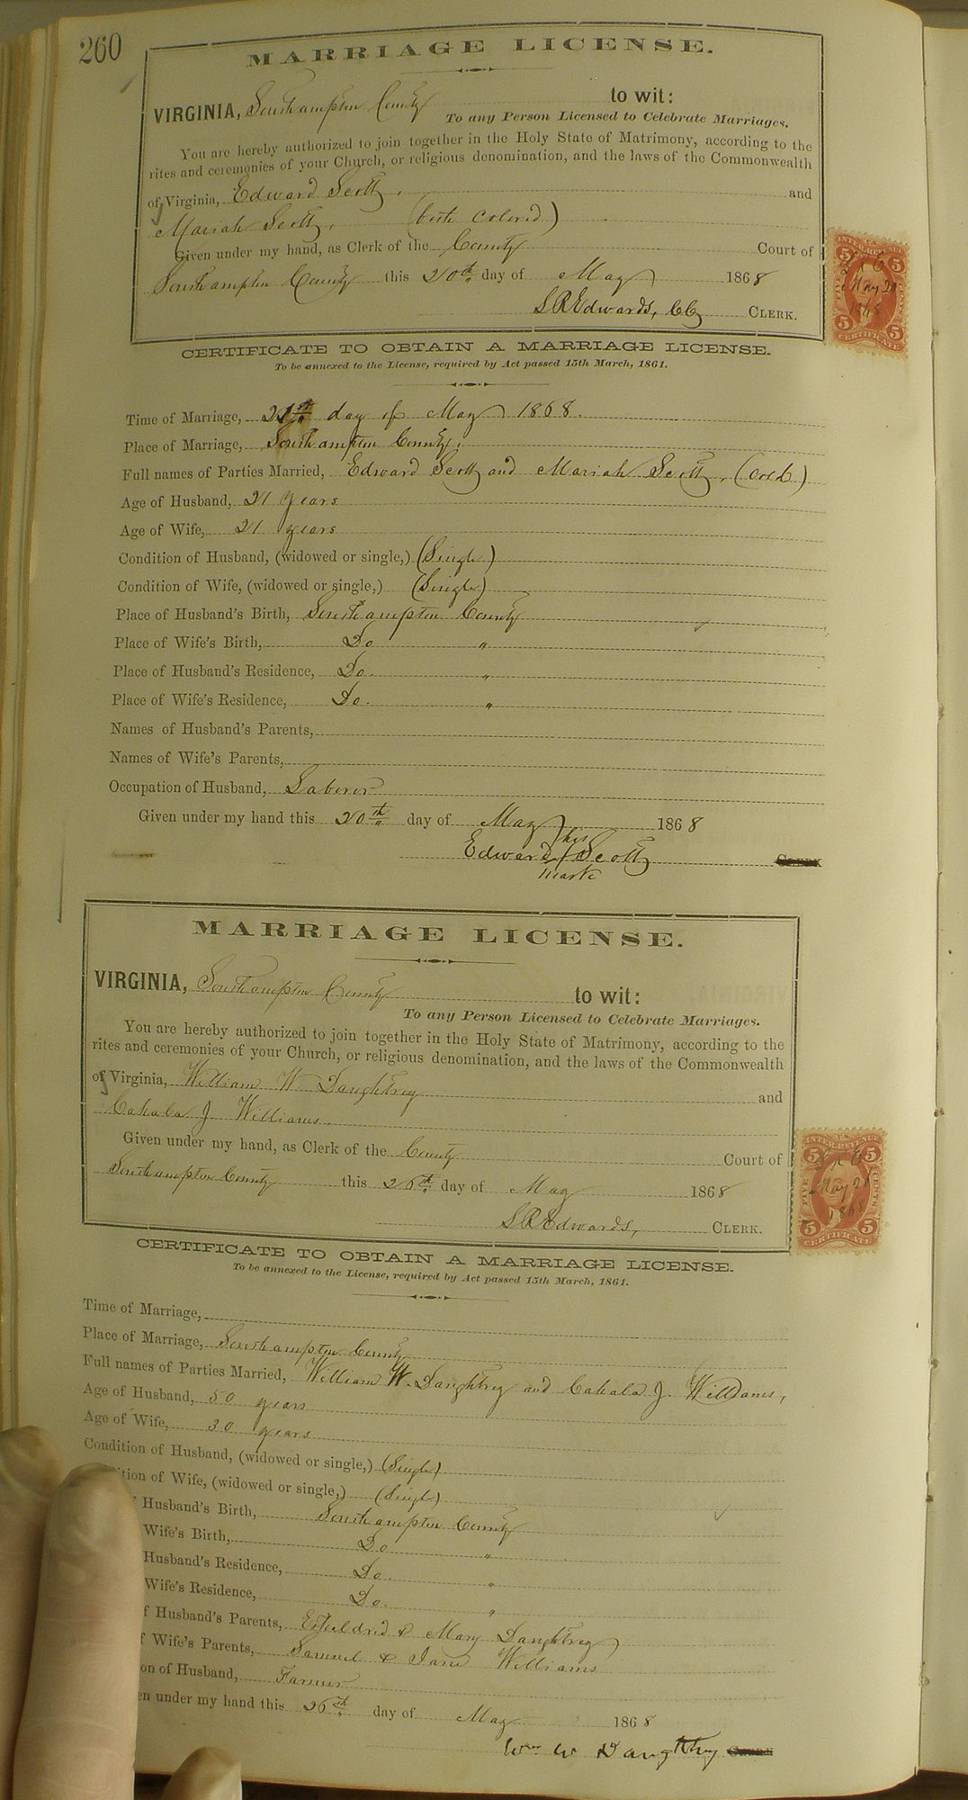 260
MARRIAGE LICENSE.
VIRGINIA, Southampton County to wit:
To any Person Licensed to Celebrate Marriages.
You are hereby authorized to join together in the Holy State of Matrimony, according to the
rites and ceremonies of your Church, or religious denomination, and the laws of the Commonwealth
of Virginia, Edward Scott, and
Mariah Scott, (both colored)
Given under my hand, as Clerk of the County Court of
Southampton County this 20th day of May 1868
L R Edwards, CC CLERK.
INTER. REVENUE
5 5
May 20
1868
5 5
CERTIFICATE
CERTIFICATE TO OBTAIN A MARRIAGE LICENSE.
To be annexed to the License, required by Act passed 15th March, 1861.
Time of Marriage, 21st day of May 1868.
Place of Marriage, Southampton County.
Full names of Parties Married, Edward Scott and Mariah Scott, (cold)
Age of Husband, 21 years
Age of Wife, 21 years
Condition of Husband, (widowed or single,) (Single)
Condition of Wife, (widowed or single,) (Single)
Place of Husband's Birth, Southampton County
Place of Wife's Birth, Do "
Place of Husband's Residence, Do. "
Place of Wife's Residence, Do. "
Names of Husband's Parents,
Names of Wife's Parents,
Occupation of Husband, Laborer
Given under my hand this 20th day of May 1868
his
Edward Scott CLERK
mark
MARRIAGE LICENSE.
VIRGINIA, Southampton County to wit:
To any Person Licensed to Celebrate Marriages.
You are hereby authorized to join together in the Holy State of Matrimony, according to the
rites and ceremonies of your Church, or religious denomination, and the laws of the Commonwealth
of Virginia, William W Daughtrey and
Cahala J Williams.
Given under my hand, as Clerk of the County Court of
Southampton County this 26th day of May 1868
L R Edwards, CLERK.
INTER. REVENUE
5 5
FIVE CENTS
May
1868
5 5
CERTIFICATE
CERTIFICATE TO OBTAIN A MARRIAGE LICENSE.
To be annexed to the License, required by Act passed 15th March, 1861.
Time of Marriage,
Place of Marriage, Southampton County
Full names of Parties Married, William W. Daughtrey and Cahala J. Williams,
Age of Husband, 50 years
Age of Wife, 30 years
Condition of Husband, (widowed or single,) (Single)
ition of Wife, (widowed or single,) (Single)
Husband's Birth, Southampton County
Wife's Birth, Do "
Husband's Residence, Do. "
Wife's Residence, Do. "
f Husband's Parents, & Mary Daughtrey
f Wife's Parents, Samuel & Jane Williams
on of Husband, Farmer
en under my hand this 26th day of May 1868
Wm W Daughtrey CLERK